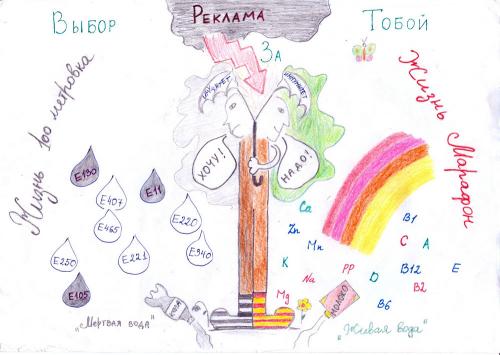 Выбор
Реклама
За
Тобой
Жизнь 100 метровка
Жизнь Марафон
иммунитет
Хочу!
Надо!
E130
E11
E407
E465
E220
E250
E221
E940
E105
Ca
Zn
Mn
K
Na
Mg
PP
D
C
A
B1
B12
B2
B6
E
Молоко
„Мертвая вода"
„Живая вода"